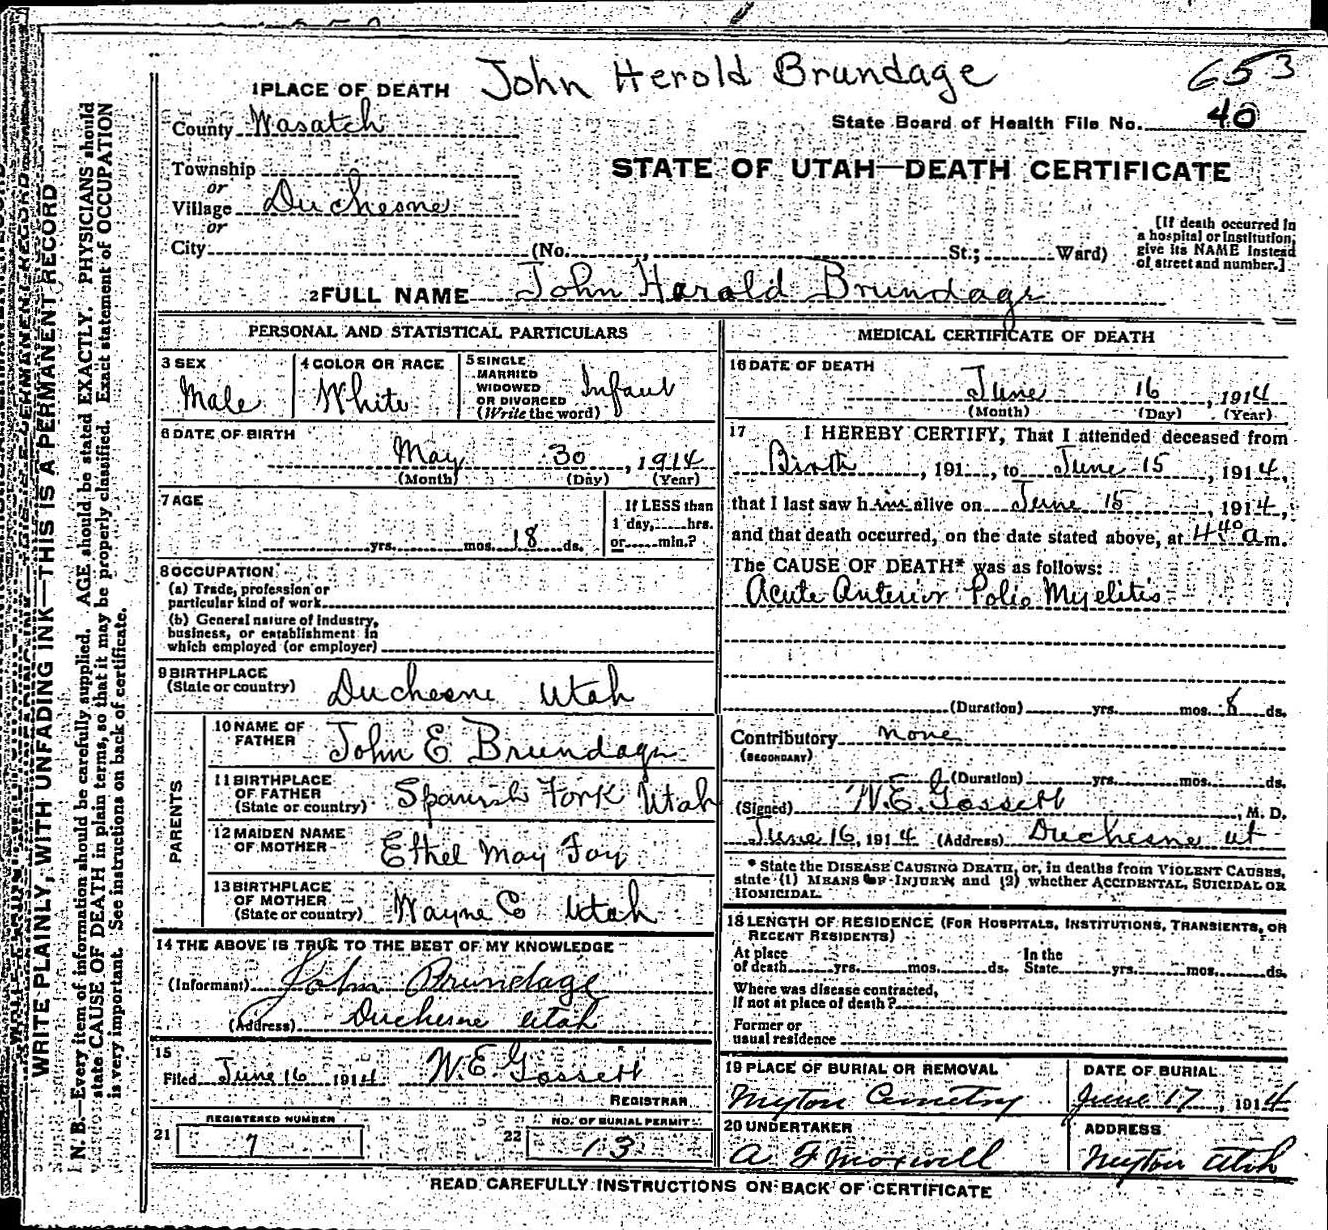 John Herold Brundage
653
1 PLACE OF DEATH
County Wasatch
State Board of Health File No. 40
Township
or
Village Duchesne
or
City (No. , St.; Ward)
STATE OF UTAH—DEATH CERTIFICATE
[If death occurred in
a hospital or institution,
give its NAME instead
of street and number.]
2 FULL NAME John Harold Brundage
PERSONAL AND STATISTICAL PARTICULARS
3 SEX
Male
4 COLOR OR RACE
White
5 SINGLE
MARRIED
WIDOWED
OR DIVORCED
(Write the word)
Infant
6 DATE OF BIRTH
May 30, 1914
(Month) (Day) (Year)
7 AGE
yrs. mos. 18 ds.
If LESS than
1 day, hrs.
or min.?
8 OCCUPATION
(a) Trade, profession or
particular kind of work
(b) General nature of industry,
business, or establishment in
which employed (or employer)
9 BIRTHPLACE
(State or country) Duchesne Utah
PARENTS
10 NAME OF
FATHER John E Brundage
11 BIRTHPLACE
OF FATHER
(State or country) Spanish Fork Utah
12 MAIDEN NAME
OF MOTHER Ethel May Foy
13 BIRTHPLACE
OF MOTHER
(State or country) Wayne Co Utah
14 THE ABOVE IS TRUE TO THE BEST OF MY KNOWLEDGE
(Informant) John Brundage
(Address) Duchesne Utah
15
Filed June 16 1914 W. E. Gossett
REGISTRAR
REGISTERED NUMBER
21 7
NO. OF BURIAL PERMIT
22 13
MEDICAL CERTIFICATE OF DEATH
16 DATE OF DEATH
June 16, 1914
(Month) (Day) (Year)
17 I HEREBY CERTIFY, That I attended deceased from
Birth, 191 , to June 15, 1914,
that I last saw him alive on June 15, 1914,
and that death occurred, on the date stated above, at 4 40 a m.
The CAUSE OF DEATH* was as follows:
Acute Anterior Polio Myelitis
(Duration) yrs. mos. 8 ds.
Contributory none
(SECONDARY)
(Duration) yrs. mos. ds.
(Signed) W. E. Gossett, M. D.
June 16, 1914 (Address) Duchesne ut
* State the DISEASE CAUSING DEATH, or, in deaths from VIOLENT CAUSES,
state (1) MEANS OF INJURY; and (2) whether ACCIDENTAL, SUICIDAL OR
HOMICIDAL.
18 LENGTH OF RESIDENCE (FOR HOSPITALS, INSTITUTIONS, TRANSIENTS, OR
RECENT RESIDENTS)
At place
of death yrs. mos. ds.
In the
State yrs. mos. ds.
Where was disease contracted,
if not at place of death?
Former or
usual residence
19 PLACE OF BURIAL OR REMOVAL
Myton Cemetry
DATE OF BURIAL
June 17, 1914
20 UNDERTAKER
A F Maxwell
ADDRESS
Myton Utah
READ CAREFULLY INSTRUCTIONS ON BACK OF CERTIFICATE
WRITE PLAINLY, WITH UNFADING INK—THIS IS A PERMANENT RECORD
N. B.—Every item of information should be carefully supplied. AGE should be stated EXACTLY. PHYSICIANS should
state CAUSE OF DEATH in plain terms, so that it may be properly classified. Exact statement of OCCUPATION
is very important. See instructions on back of certificate.